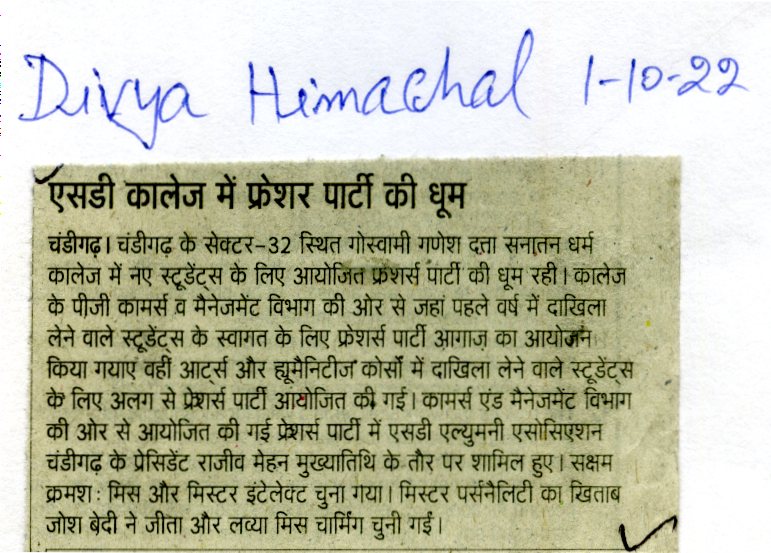 Divya Himachal 1-10-22
एसडी कालेज में फ्रेशर पार्टी की धूम
चंडीगढ़। चंडीगढ़ के सेक्टर-32 स्थित गोस्वामी गणेश दत्ता सनातन धर्म
कालेज में नए स्टूडेंट्स के लिए आयोजित फ्रेशर्स पार्टी की धूम रही। कालेज
के पीजी कामर्स व मैनेजमेंट विभाग की ओर से जहां पहले वर्ष में दाखिला
लेने वाले स्टूडेंट्स के स्वागत के लिए फ्रेशर्स पार्टी आगाज का आयोजन
किया गयाएं वहीं आर्ट्स और ह्यूमैनिटीज कोर्सों में दाखिला लेने वाले स्टूडेंट्स
के लिए अलग से फ्रेशर्स पार्टी आयोजित की गई। कामर्स एंड मैनेजमेंट विभाग
की ओर से आयोजित की गई फ्रेशर्स पार्टी में एसडी एल्युमनी एसोसिएशन
चंडीगढ़ के प्रेसिडेंट राजीव मेहन मुख्यातिथि के तौर पर शामिल हुए। सक्षम
क्रमश: मिस और मिस्टर इंटेलेक्ट चुना गया। मिस्टर पर्सनैलिटी का खिताब
जोश बेदी ने जीता और लव्या मिस चार्मिंग चुनी गईं।